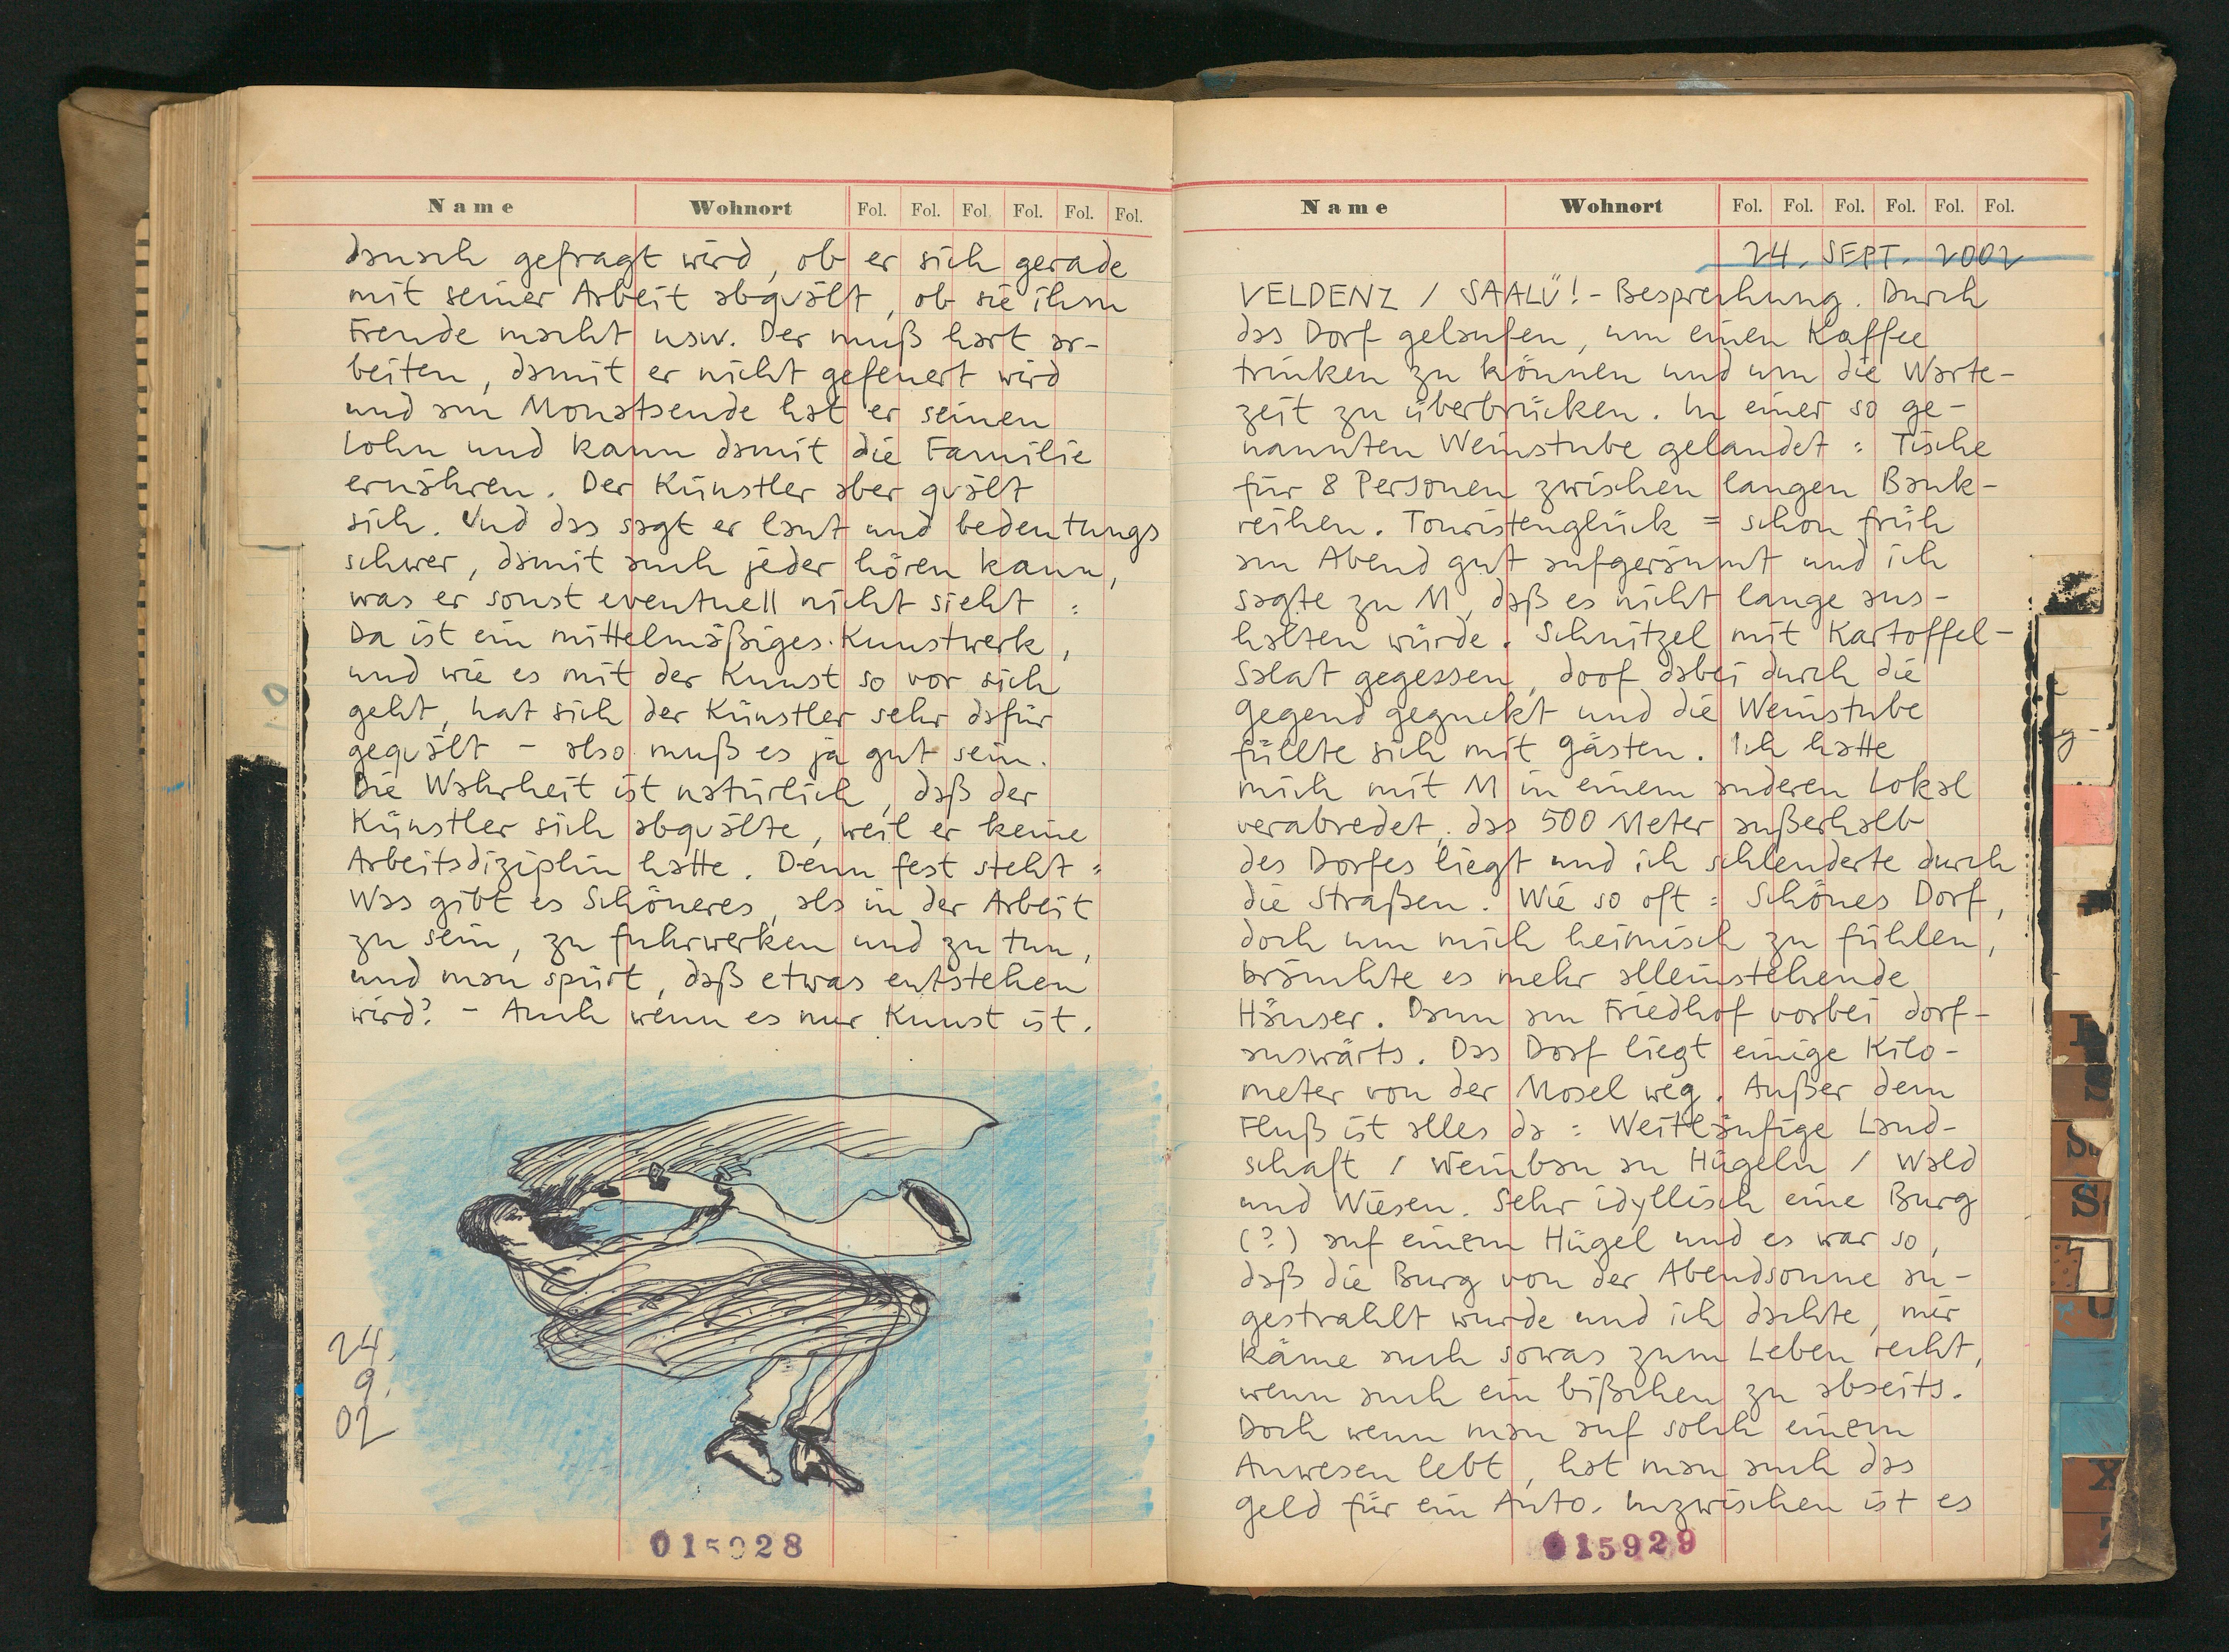 Name Wohnort Fol. Fol. Fol. Fol. Fol. Fol.
danach gefragt wird, ob er sich gerade
mit seiner Arbeit abquält, ob sie ihm
Freude macht usw. Der muß hart ar-
beiten, damit er nicht gefeuert wird
und am Monatsende hat er seinen
Lohn und kann damit die Familie
ernähren. Der Künstler aber quält
sich. Und das sagt er laut und bedeutungs
schwer, damit auch jeder hören kann,
was er sonst eventuell nicht sieht :
Da ist ein mittelmäßiges Kunstwerk,
und wie es mit der Kunst so vor sich
geht, hat sich der Künstler sehr dafür
gequält - also muß es ja gut sein.
Die Wahrheit ist natürlich, daß der
Künstler sich abquälte, weil er keine
Arbeitsdiziplin hatte. Denn fest steht :
Was gibt es Schöneres, als in der Arbeit
zu sein, zu fuhrwerken und zu tun,
und man spürt, daß etwas entstehen
wird? - Auch wenn es nur Kunst ist.
24.
9.
02
015928
Name Wohnort Fol. Fol. Fol. Fol. Fol. Fol.
24. SEPT. 2002
VELDENZ / SAALÜ! - Besprechung. Durch
das Dorf gelaufen, um einen Kaffee
trinken zu können und um die Warte-
zeit zu überbrücken. In einer so ge-
nannten Weinstube gelandet : Tische
für 8 Personen zwischen langen Bank-
reihen. Touristenglück = schon früh
am Abend gut aufgeräumt und ich
sagte zu M, daß es nicht lange aus-
halten würde. Schnitzel mit Kartoffel-
salat gegessen, doof dabei durch die
Gegend geguckt und die Weinstube
füllte sich mit Gästen. Ich hatte
mich mit M in einem anderen Lokal
verabredet, das 500 Meter außerhalb
des Dorfes liegt und ich schlenderte durch
die Straßen. Wie so oft : Schönes Dorf,
doch um mich heimisch zu fühlen,
bräuchte es mehr alleinstehende
Häuser. Dann am Friedhof vorbei dorf-
auswärts. Das Dorf liegt einige Kilo-
meter von der Mosel weg. Außer dem
Fluß ist alles da : Weitläufige Land-
schaft / Weinbau an Hügeln / Wald
und Wiesen. Sehr idyllisch eine Burg
(?) auf einem Hügel und es war so,
daß die Burg von der Abendsonne an-
gestrahlt wurde und ich dachte, mir
käme auch sowas zum Leben recht,
wenn auch ein bißchen zu abseits.
Doch wenn man auf solch einem
Anwesen lebt, hat man auch das
Geld für ein Auto. Inzwischen ist es
015929